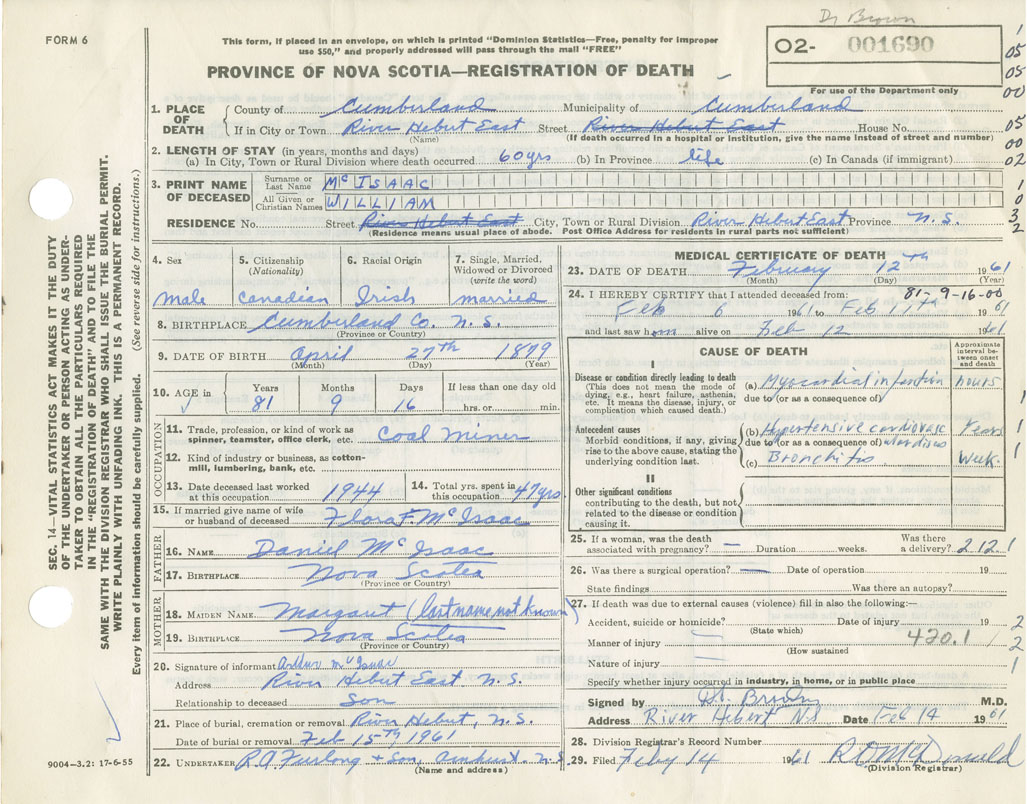 Dr Brown
FORM 6
This form, if placed in an envelope, on which is printed "Dominion Statistics—Free, penalty for improper
use $50," and properly addressed will pass through the mail "FREE"
02- 001690
For use of the Department only
PROVINCE OF NOVA SCOTIA—REGISTRATION OF DEATH
1. PLACE OF DEATH
County of Cumberland Municipality of Cumberland
If in City or Town River Hebert East Street River Hebert East House No.
(Name) (If death occurred in a hospital or institution, give the name instead of street and number)
2. LENGTH OF STAY (in years, months and days)
(a) In City, Town or Rural Division where death occurred 60 yrs (b) In Province life (c) In Canada (if immigrant)
3. PRINT NAME OF DECEASED
Surname or Last Name McISAAC
All Given or Christian Names WILLIAM
RESIDENCE No. Street River Hebert East City, Town or Rural Division River Hebert East Province N.S.
(Residence means usual place of abode. Post Office Address for residents in rural parts not sufficient)
4. Sex
male
5. Citizenship (Nationality)
Canadian
6. Racial Origin
Irish
7. Single, Married, Widowed or Divorced (write the word)
married
8. BIRTHPLACE Cumberland Co. N.S.
(Province or Country)
9. DATE OF BIRTH April 27th 1879
(Month) (Day) (Year)
10. AGE in
Years Months Days If less than one day old
81 9 16 hrs. or min.
OCCUPATION
11. Trade, profession, or kind of work as
spinner, teamster, office clerk, etc. Coal Miner
12. Kind of industry or business, as cotton-
mill, lumbering, bank, etc.
13. Date deceased last worked
at this occupation 1944
14. Total yrs. spent in
this occupation 47 yrs
15. If married give name of wife
or husband of deceased Flora F. McIsaac
FATHER
16. NAME Daniel McIsaac
17. BIRTHPLACE Nova Scotia
(Province or Country)
MOTHER
18. MAIDEN NAME Margaret (last name not known)
19. BIRTHPLACE Nova Scotia
(Province or Country)
20. Signature of informant Arthur McIsaac
Address River Hebert East N.S.
Relationship to deceased Son
21. Place of burial, cremation or removal River Hebert, N.S.
Date of burial or removal Feb 15th 1961
22. UNDERTAKER R.A. Furlong + Son, Amherst N.S.
(Name and address)
MEDICAL CERTIFICATE OF DEATH
23. DATE OF DEATH February 12th 1961
(Month) (Day) (Year)
81-9-16-00
24. I HEREBY CERTIFY that I attended deceased from:
Feb 6 1961 to Feb 11th 1961
and last saw him alive on Feb 12 1961
CAUSE OF DEATH
Approximate interval between onset and death
I
Disease or condition directly leading to death
(This does not mean the mode of
dying, e.g., heart failure, asthenia,
etc. It means the disease, injury, or
complication which caused death.)
(a) Myocardial infarction hours
due to (or as a consequence of)
Antecedent causes
Morbid conditions, if any, giving
rise to the above cause, stating the
underlying condition last.
(b) Hypertensive cardiovasc Years
due to (or as a consequence of)
(c) Bronchitis week
II
Other significant conditions
contributing to the death, but not
related to the disease or condition
causing it.
25. If a woman, was the death
associated with pregnancy? — Duration weeks. Was there
a delivery? 2.12.1
26. Was there a surgical operation? — Date of operation 19
State findings Was there an autopsy?
27. If death was due to external causes (violence) fill in also the following:—
Accident, suicide or homicide? Date of injury 19
(State which)
Manner of injury 420.1
(How sustained)
Nature of injury
Specify whether injury occurred in industry, in home, or in public place
Signed by Dr. Brown M.D.
Address River Hebert N.S Date Feb 14 1961
28. Division Registrar's Record Number
29. Filed Feby 14 1961
(Division Registrar)
SEC. 14—VITAL STATISTICS ACT MAKES IT THE DUTY
OF THE UNDERTAKER OR PERSON ACTING AS UNDER-
TAKER TO OBTAIN ALL THE PARTICULARS REQUIRED
IN THE "REGISTRATION OF DEATH" AND TO FILE THE
SAME WITH THE DIVISION REGISTRAR WHO SHALL ISSUE THE BURIAL PERMIT.
WRITE PLAINLY WITH UNFADING INK. THIS IS A PERMANENT RECORD.
Every item of information should be carefully supplied. (See reverse side for instructions.)
9004—3.2: 17-6-55
1
05
05
00
05
00
02
1
0
3
2
1
1
1
2
2
1